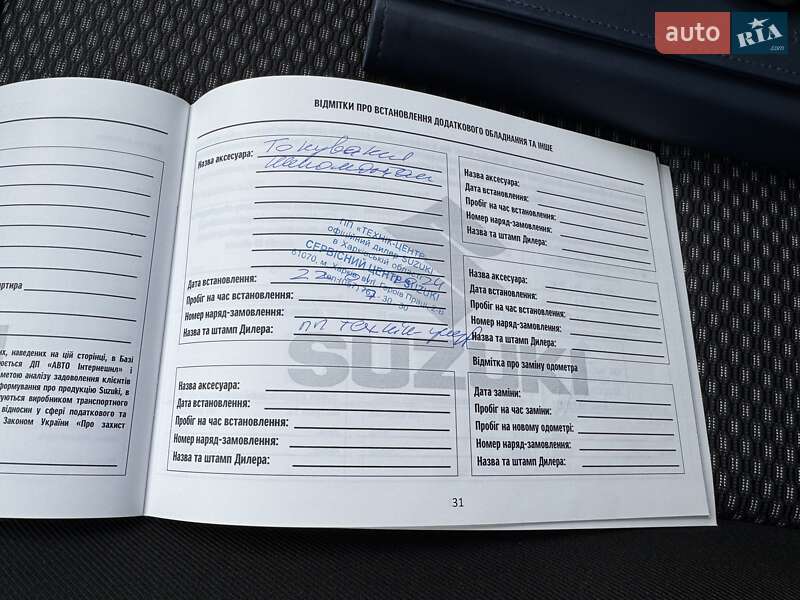 auto RIA.com
ВІДМІТКИ ПРО ВСТАНОВЛЕННЯ ДОДАТКОВОГО ОБЛАДНАННЯ ТА ІНШЕ
Назва аксесуара:
ПП «ТЕХНІК-ЦЕНТР»
офіційний дилер SUZUKI
в Харківській області
СЕРВІСНИЙ ЦЕНТР SUZUKI
61070, м. Харків, вул. Героїв
Дата встановлення:
Пробіг на час встановлення:
Номер наряд-замовлення:
Назва та штамп Дилера: ПП Технік центр
Назва аксесуара:
Дата встановлення:
Пробіг на час встановлення:
Номер наряд-замовлення:
Назва та штамп Дилера:
Назва аксесуара:
Дата встановлення:
Пробіг на час встановлення:
Номер наряд-замовлення:
Назва та штамп Дилера:
Назва аксесуара:
Дата встановлення:
Пробіг на час встановлення:
Номер наряд-замовлення:
Назва та штамп Дилера:
Відмітка про заміну одометра
Дата заміни:
Пробіг на час заміни:
Пробіг на новому одометрі:
Номер наряд-замовлення:
Назва та штамп Дилера:
SUZUKI
31
артира
их, наведених на цій сторінці, в Базі
юється ДП «АВТО Інтернешнл» і
метою аналізу задоволення клієнтів
формування про продукцію Suzuki, в
уються виробником транспортного
відносин у сфері податкового та
Законом України «Про захист